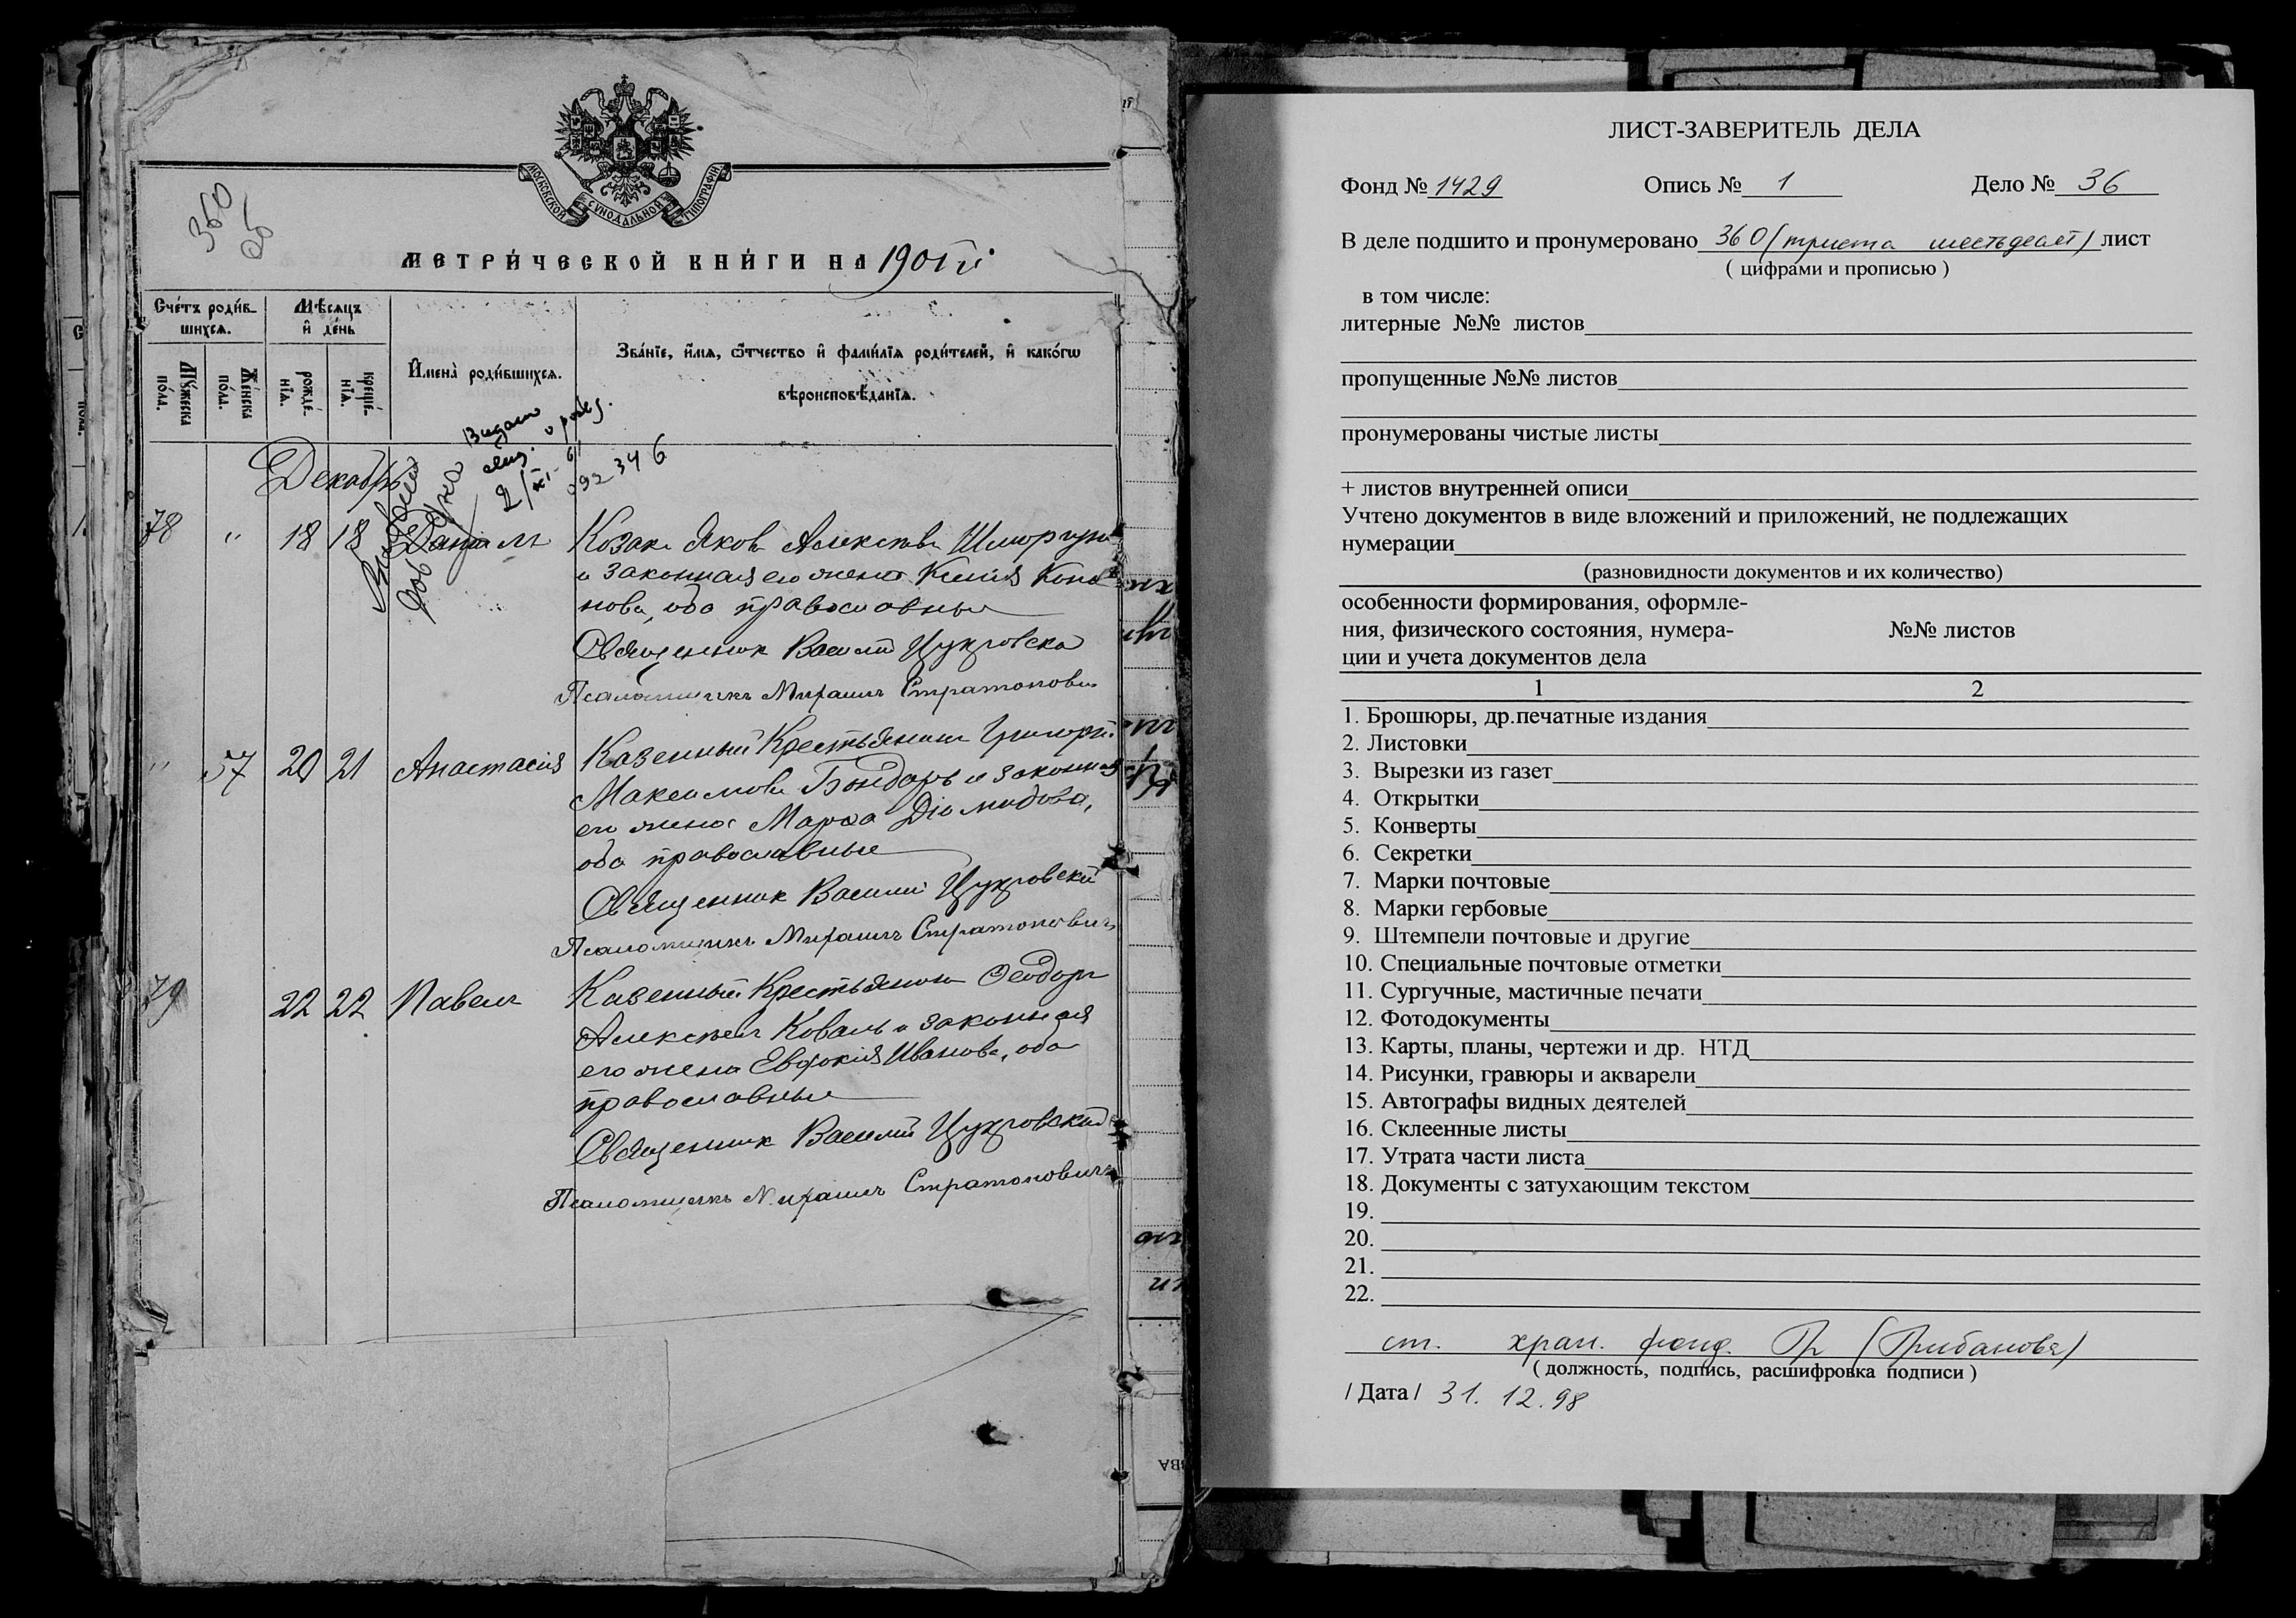 360
об
МОСКОВСКОЙ СУНОДАЛЬНОЙ ТИПОГРАФІИ
МЕТРИ́ЧЕСКОЙ КНИ́ГИ НА 1901 й
Сче́тъ роди́в-
шихся.
Мѣ́сяцъ
и҆ де́нь
Мꙋ́жеска
по́ла.
Же́нска
по́ла.
рожде́-
нїя.
креще́-
нїя.
И҆мена̀ роди́вшихся.
Зва́нїе, и҆́мя, ѻ҆́тчество и҆ фами́лїя роди́телей, и҆ како́гѡ
вѣроисповѣ́данїя.
Видано
свид. о рожд.
092346
Декабрь
78 " 18 18 Даниилъ Козакъ Яковъ Алексѣевъ Шморгун
и законная его жена Ксенія Коно
нова, оба православные
Священникъ Василій Цукровскій
Псаломщикъ Михаилъ Стратоновичъ
" 57 20 21 Анастасія Казенный Крестьянинъ Григорій
Максимовъ Бондарь и законная
его жена Марѳа Діомидова,
оба православные
Священникъ Василій Цукровскій
Псаломщикъ Михаилъ Стратоновичъ
79 22 22 Павелъ Казенный Крестьянинъ Ѳеодоръ
Алексѣевъ Коваль и законная
его жена Евдокія Иванова, оба
православные
Священникъ Василій Цукровский
Псаломщикъ Михаилъ Стратоновичъ
ЛИСТ-ЗАВЕРИТЕЛЬ ДЕЛА
Фонд № 1429 Опись № 1 Дело № 36
В деле подшито и пронумеровано 360 (триста шестьдесят) лист
( цифрами и прописью )
в том числе:
литерные №№ листов
пропущенные №№ листов
пронумерованы чистые листы
+ листов внутренней описи
Учтено документов в виде вложений и приложений, не подлежащих
нумерации
(разновидности документов и их количество)
особенности формирования, оформле-
ния, физического состояния, нумера- №№ листов
ции и учета документов дела
1 2
1. Брошюры, др.печатные издания
2. Листовки
3. Вырезки из газет
4. Открытки
5. Конверты
6. Секретки
7. Марки почтовые
8. Марки гербовые
9. Штемпели почтовые и другие
10. Специальные почтовые отметки
11. Сургучные, мастичные печати
12. Фотодокументы
13. Карты, планы, чертежи и др. НТД
14. Рисунки, гравюры и акварели
15. Автографы видных деятелей
16. Склеенные листы
17. Утрата части листа
18. Документы с затухающим текстом
19.
20.
21.
22.
ст. хран. фонд. (Грибанова)
( должность, подпись, расшифровка подписи )
/ Дата / 31. 12. 98